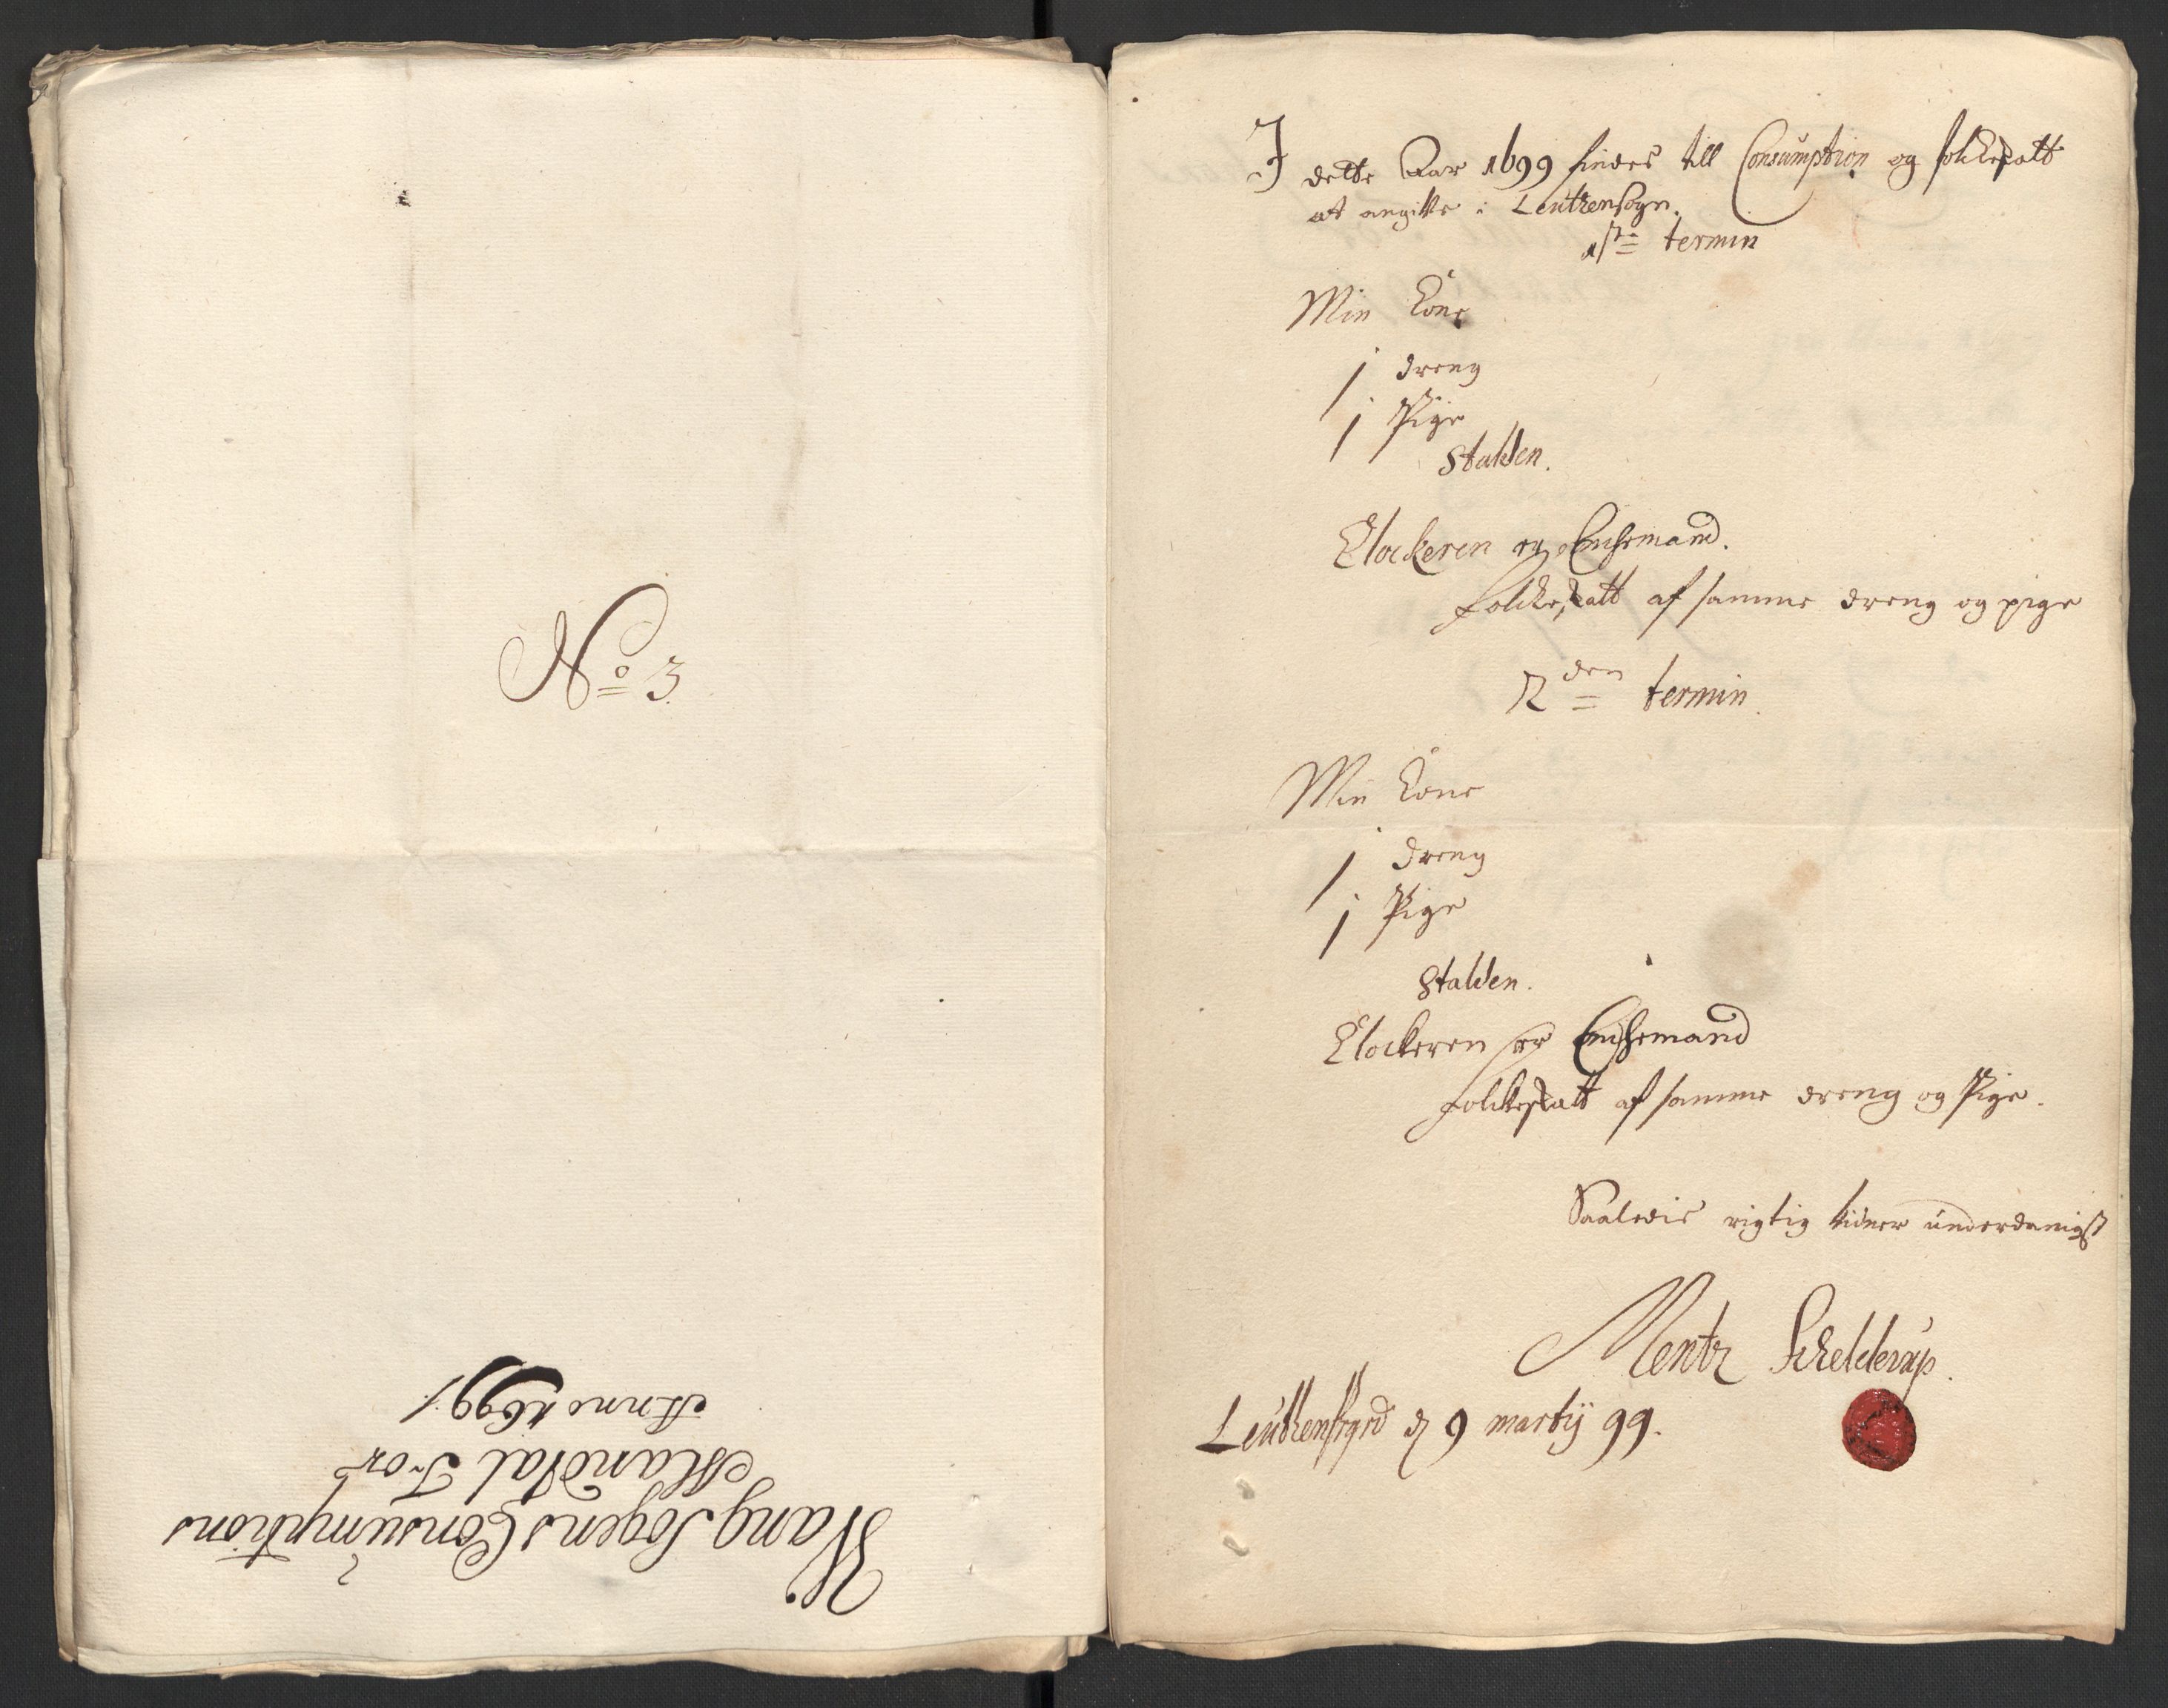 No 3.
Wang Sogens Consumptions
Mandtal For
Anno 1699.
I dette Aar 1699 findes till Consumption og folkeskatt
at angifve i Leuthensogn.
1ste termin
Min kone
1 dreng
1 Pige
Stalden.
Klockeren er Enchemand.
folckeskatt af samme dreng og pige
2den termin.
Min kone
1 dreng
1 Pige
Stalden.
Klockeren er Enchemand
folckeskatt af samme dreng og Pige.
Saaledis rigtig tiener underdanigst
Mentz Schelderup.
d 9 martij 99.